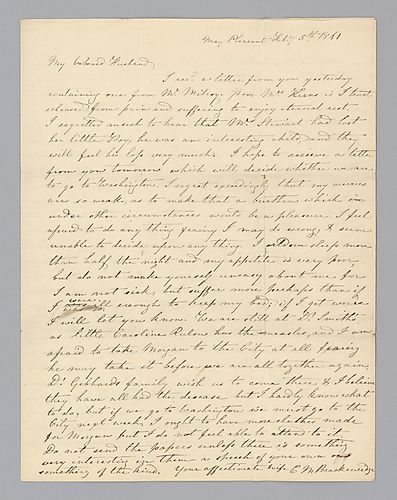 May Pleasant Feby 5th 1841
My beloved Husband,
I recd a letter from you yesterday
containing one from Mr Milroy. poor Mrs Keens is I trust
released from pain and suffering to enjoy eternal rest.
I regretted much to hear that Mr Stewart had lost
her little Boy, he was an interesting child, and they
will feel his loss very much. I hope to receive a letter
from you tomorrow which will decide whether we are
to go to Washington. I regret exceedingly that my nerves
are so weak, as to make that a burthen which in
under other circumstances would be a pleasure. I feel
afraid to do any thing fearing I may do wrong & seem
unable to decide upon any thing. I seldom sleep more
than half the night and my appetite is very poor,
but do not make yourself uneasy about me for
I am not sick, but suffer more perhaps than if
I were ill enough to keep my bed; if I get worse
I will let you know. We are still at Dr Smiths
as little Caroline Ralson has the measles, and I am
afraid to take Morgan to the City at all fearing
he may take it before we are all together again.
Dr Gebhards family wish us to come there & I believe
they have all had the disease but I hardly know what
to do, but if we go to Washington we must go to the
City next week, I ought to have more clothes made
for Morgan but I do not feel able to attend to it.
Do not send the papers unless there is something
very interesting in them a speech of your own or
something of the kind. Your affectionate wife C M Brackenridge